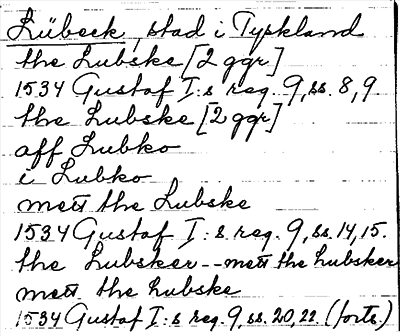 Lübeck, stad i Tyskland
the Lubske [2 ggr]
1534 Gustaf I:s reg. 9, ss. 8, 9.
the Lubske [2 ggr]
aff Lubko
i Lubko
mett the Lubske
1534 Gustaf I:s reg. 9, ss. 14, 15.
the Lubsker -- mett the lubsker
mett the lubske
1534 Gustaf I:s reg. 9, ss. 20, 22. (forts.)